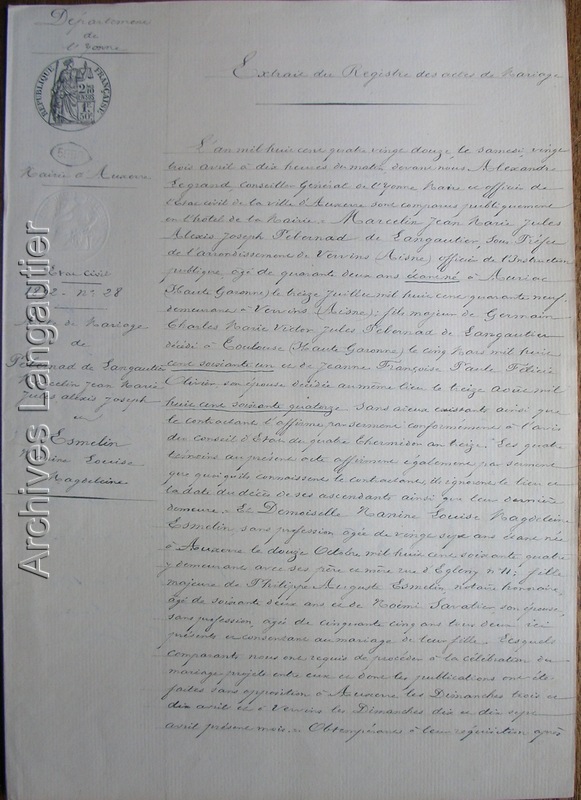 Département
de
l'Yonne
RÉPUBLIQUE FRANÇAISE
Mairie d'Auxerre
Etat Civil
1892 - N° 28
Acte de Mariage
de
Pebernad de Langautier
Marcelin Jean Marie
Jules Alexis Joseph
et
Esmelin
Nanine Louise
Magdeleine
Archives Langautier
Extrait du Registre des actes de Mariage
L'an mil huit cent quatre vingt douze le samedi vingt
trois avril à dix heures du matin devant nous Alexandre
Legrand, conseiller Général de l'Yonne Maire et officier de
l'Etat civil de la ville d'Auxerre sont comparus publiquement
en l'hôtel de la Mairie = Marcelin Jean Marie Jules
Alexis Joseph Pebernad de Langautier, Sous Préfet
de l'arrondissement de Vervins (Aisne) officier de l'Instruction
publique âgé de quarante deux ans étant né à Auriac
(Haute Garonne) le treize Juillet mil huit cent quarante neuf
demeurant à Vervins (Aisne); fils majeur de Germain
Charles Marie Victor Jules Pebernad de Langautier
décédé à Toulouse (Haute Garonne) le cinq Mars mil huit
cent soixante un et de Jeanne Françoise Paule Félicie
Olivier son épouse décédée au même lieu le treize août mil
huit cent soixante quatorze sans aïeux existants ainsi que
le contractant l'affirme par serment conformément à l'avis
du Conseil d'Etat de quatre Thermidor an treize. Les quatre
témoins au présent acte affirment également par serment
que quoiqu'ils connaissent le contractant, ils ignorent le lieu et
la date du décès de ses ascendants ainsi que leur dernière
demeure. = Et Demoiselle Nanine Louise Magdeleine
Esmelin sans profession âgée de vingt sept ans étant née
à Auxerre le douze Octobre mil huit cent soixante quatre
y demeurant avec ses père et mère rue d'Egleny n° 11; fille
majeure de Philippe Auguste Esmelin notaire honoraire,
âgé de soixante deux ans et de Noémi Savatier son épouse,
sans profession, âgée de cinquante cinq ans tous deux ici
présents et consentant au mariage de leur fille. Lesquels
comparants nous ont requis de procéder à la célébration du
mariage projeté entre eux et dont les publications ont été
faites sans opposition à Auxerre les Dimanches trois et
dix avril et à Vervins les Dimanches dix et dix sept
avril présent mois. = Obtempérant à leur réquisition après